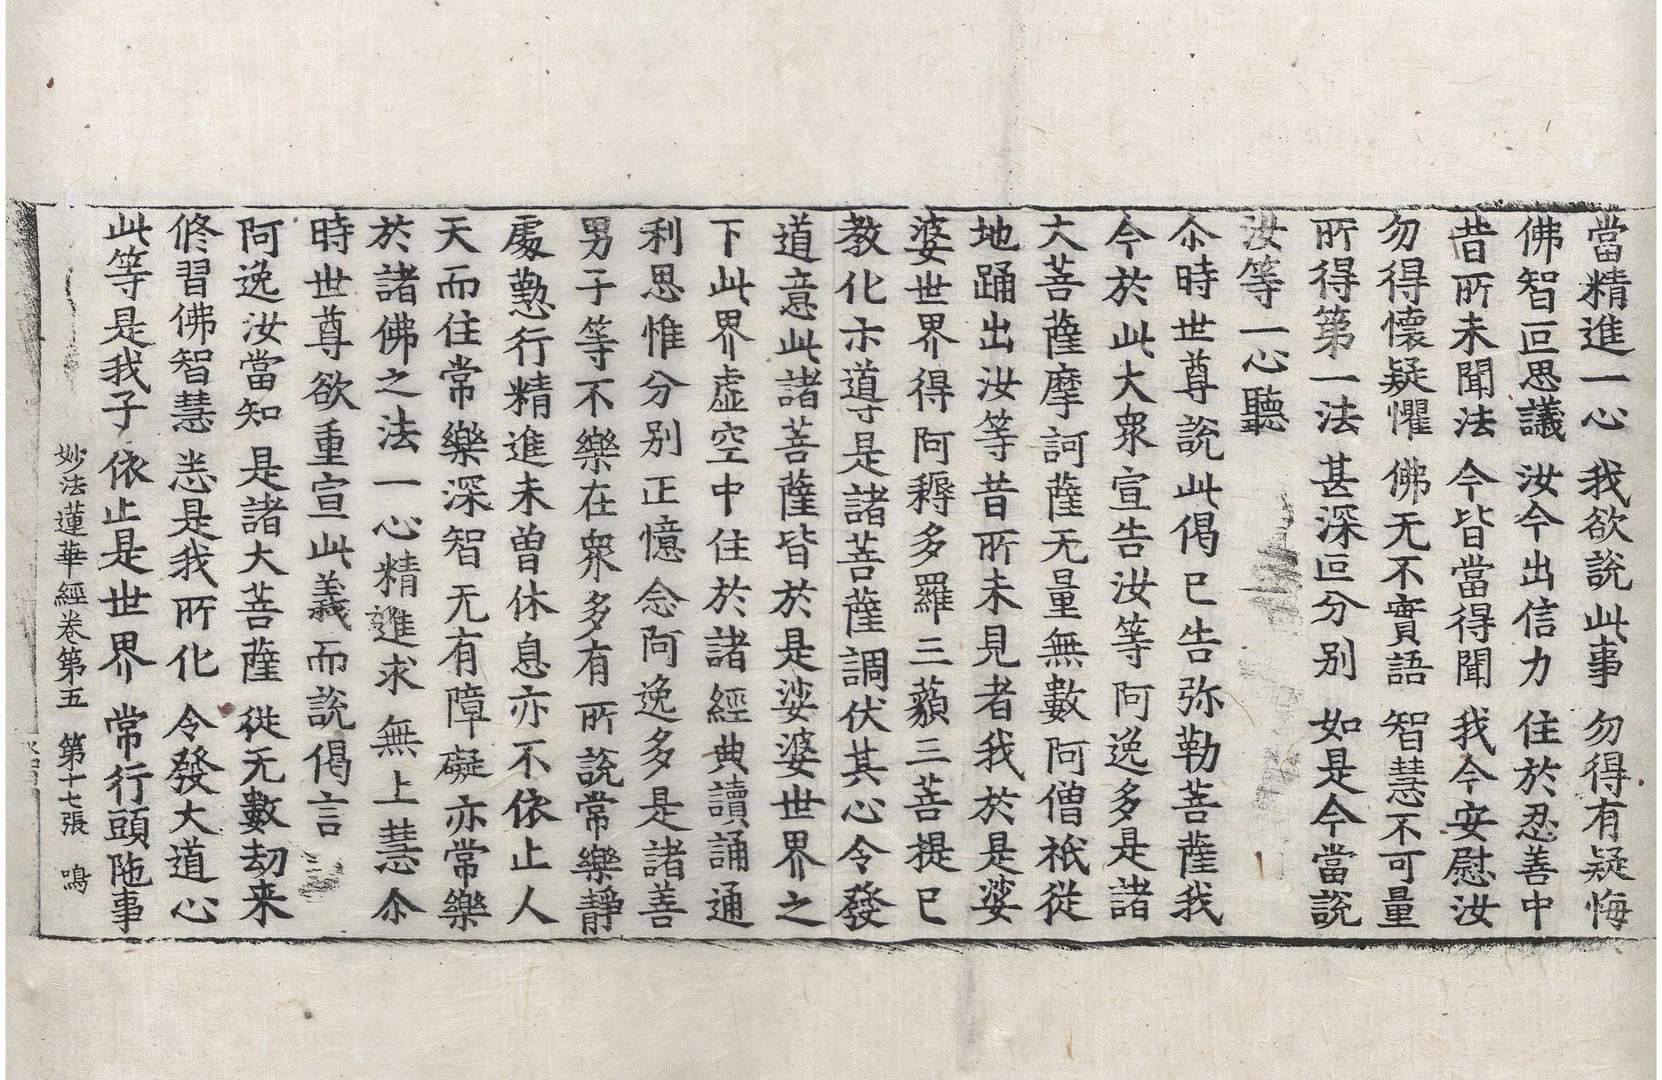 當精進一心 我欲說此事 勿得有疑悔
佛智叵思議 汝今出信力 住於忍善中
昔所未聞法 今皆當得聞 我今安慰汝
勿得懷疑懼 佛无不實語 智慧不可量
所得第一法 甚深叵分別 如是今當說
汝等一心聽
尒時世尊說此偈已告弥勒菩薩我
今於此大衆宣告汝等阿逸多是諸
大菩薩摩訶薩无量無數阿僧祇從
地踊出汝等昔所未見者我於是娑
婆世界得阿耨多羅三藐三菩提已
教化示導是諸菩薩調伏其心令發
道意此諸菩薩皆於是娑婆世界之
下此界虛空中住於諸經典讀誦通
利思惟分別正憶念阿逸多是諸善
男子等不樂在衆多有所說常樂靜
處懃行精進未曾休息亦不依止人
天而住常樂深智无有障礙亦常樂
於諸佛之法一心精進求無上慧尒
時世尊欲重宣此義而說偈言
阿逸汝當知 是諸大菩薩 從无數劫来
修習佛智慧 悉是我所化 令發大道心
此等是我子 依止是世界 常行頭陁事
妙法蓮華經卷第五 第十七張 鳴